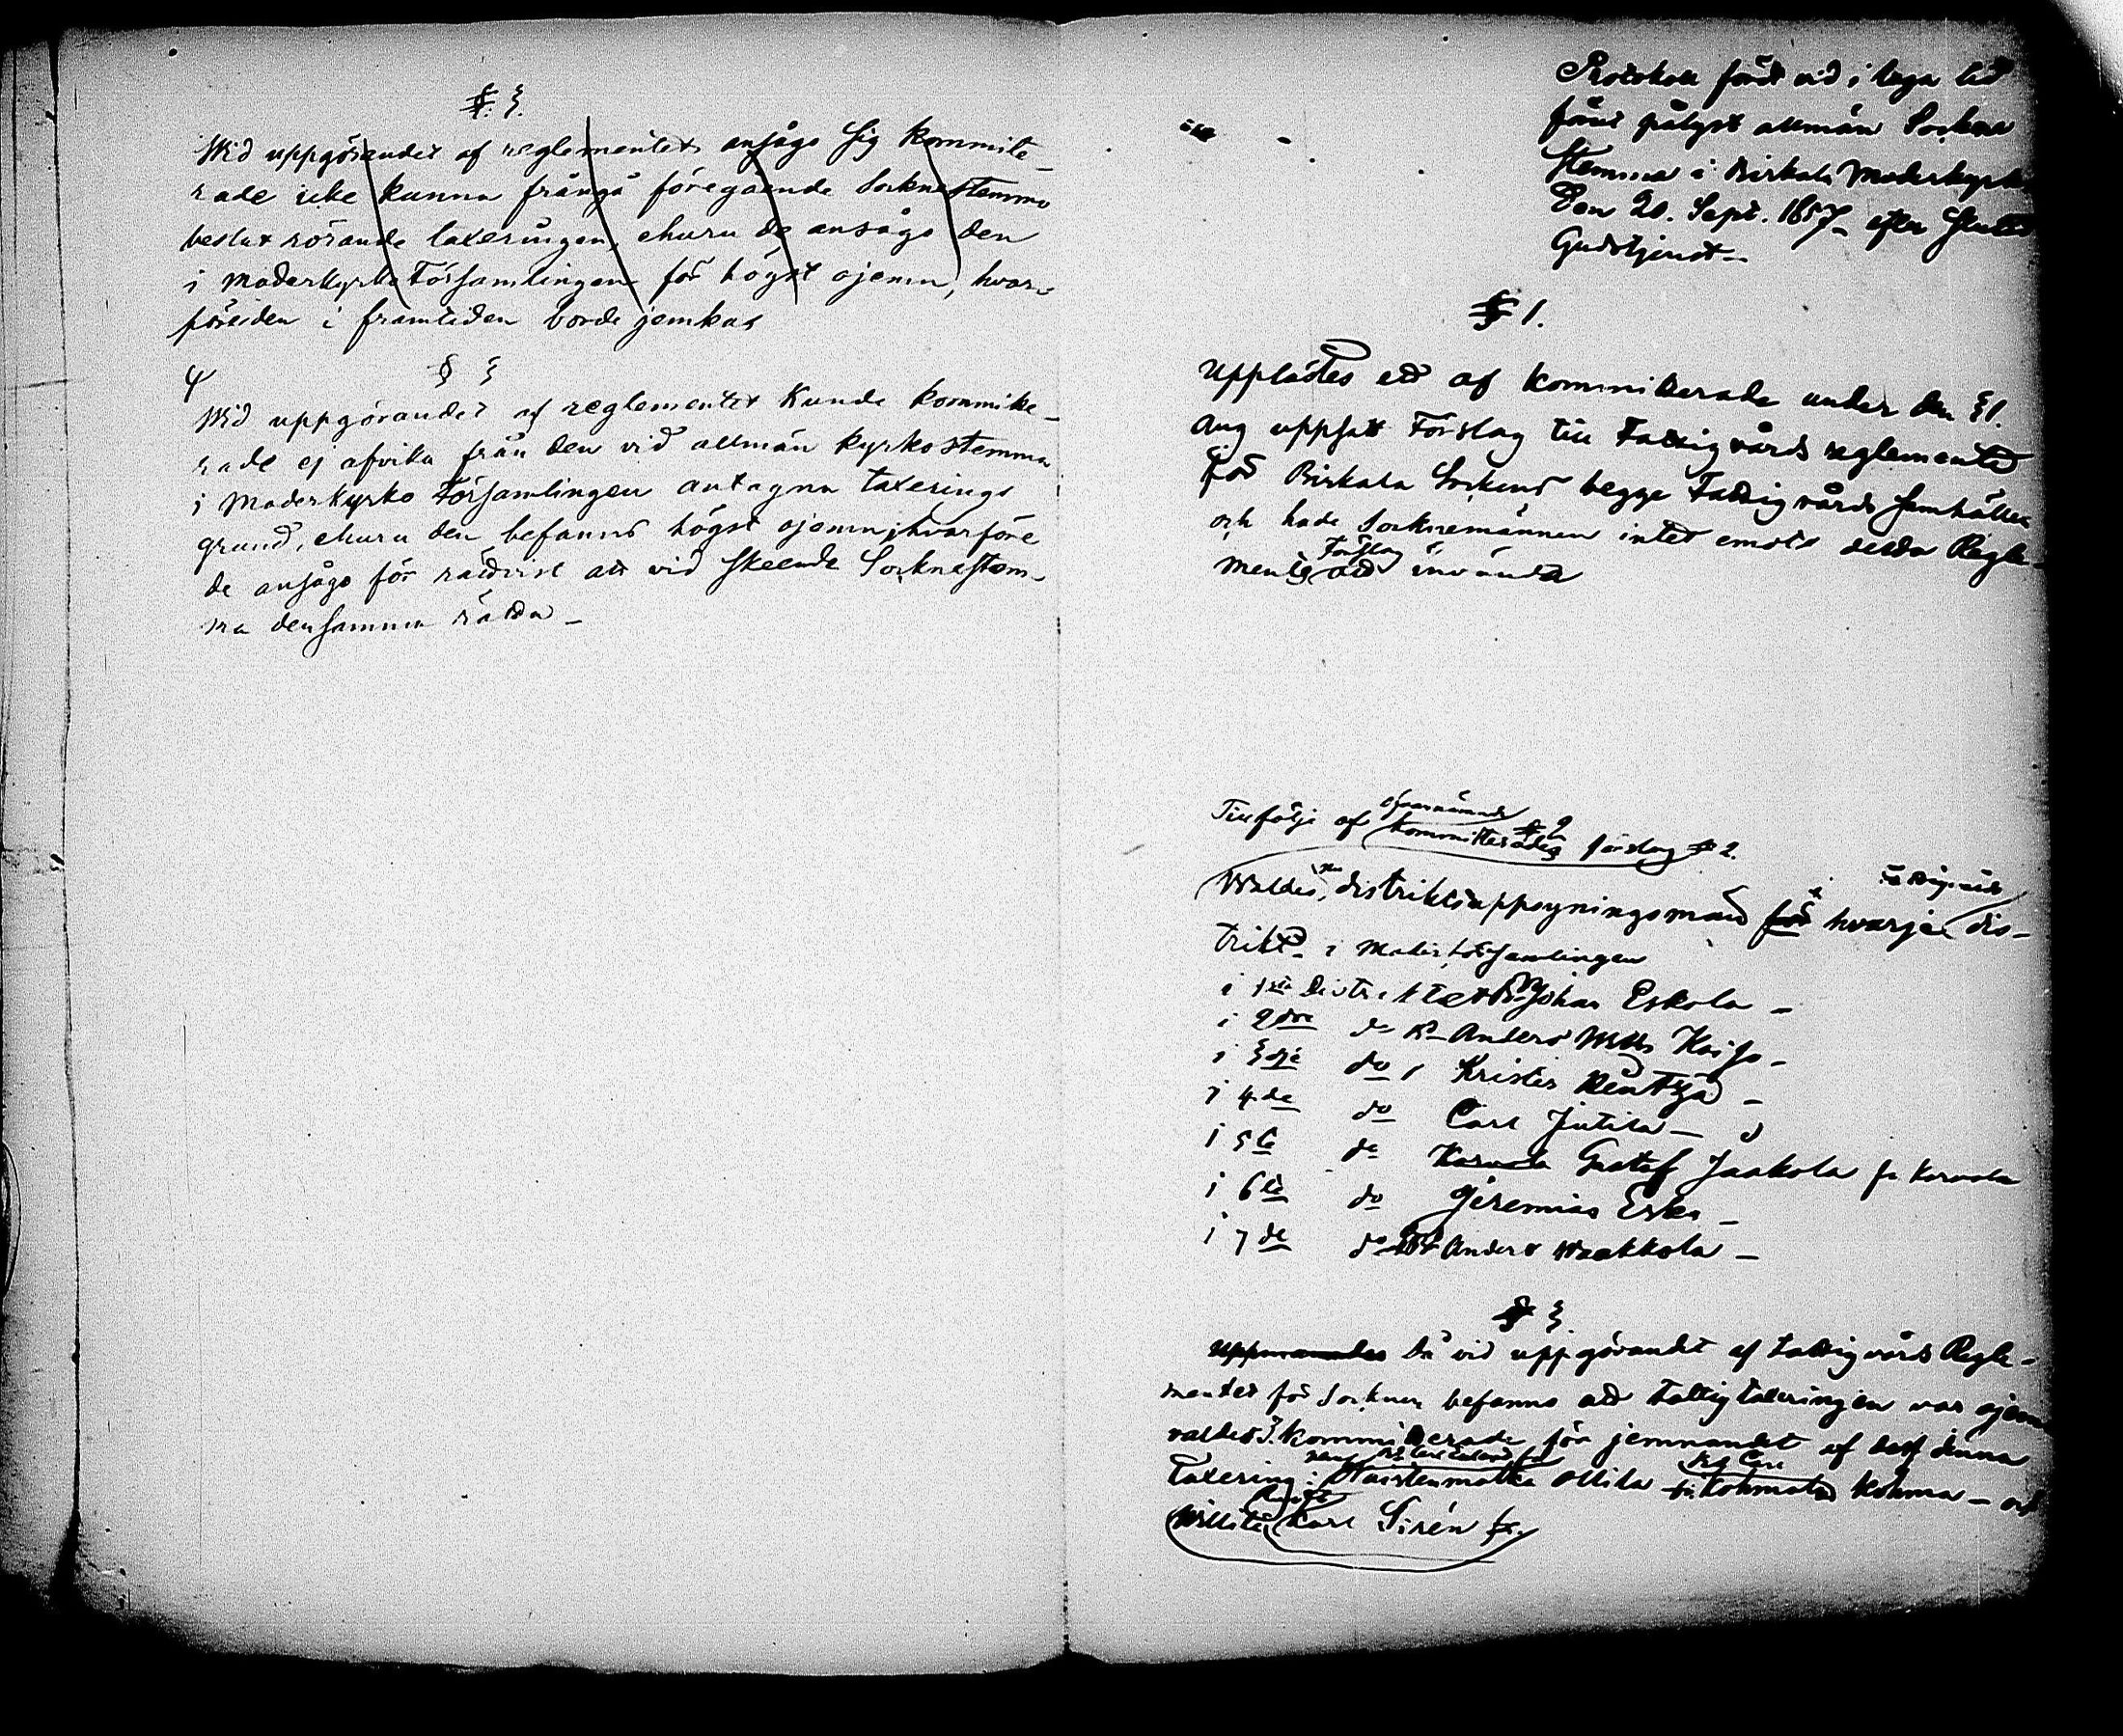 §. 3.
Wid uppgörandet af reglementet ansågo sig kommite-
rade icke kunna frångå föregående Sockne stemmo
beslut rörande taxeringen, ehuru de ansågo den
i moderkyrko Församlingen för högst ojemn, hvar-
före den i framtiden borde jemkas
§ 3
Wid uppgörandet af reglementet kunde kommite-
rade ej afvika från den vid allmän kyrkostemma
i Moderkyrko Församlingen antagna taxerings
grund, ehuru den befanns högst ojemn, hvarföre
de ansågo för rådvist att vid skeende Socknestem-
ma densamma rätta _
Protokoll fördt vid i laga tid
förut pålyst allmän Sockne
stemma i Birkala Moderkyrka
Den 20. Sept. 1857_ efter slutad
Gudstjenst_
§ 1.
Upplästes ett af kommitterade under den 31.
Aug uppsatt Förslag till Fattigvårds reglemente
för Birkala Sockens begge Fattigvårds samhällen
och hade Socknemännen intet emot detta Regle-
Förslag
mente att invända
ofvannämnde
§ 2
Tillfölje af kommitterades förslag § 2.
Fattigvårds
Waldes, distriktsuppsyningsman för hvarje dis-
trikt_ i Moderförsamlingen
i 1sta Distriktet Johan Eskola _
i 2dra do Anders Matts Kaiso _
i 3dje do Krister Penttjä _
i 4de do Carl Jutila _
i 5te do Karvola Gustaf Jaakola fr Karvola
i 6te do Jeremias Erka _
i 7de do Anders Waakkola _
§ 3.
Då vid uppgörandet af Fattigvårds Regle-
mentet för Socknen befanns att Fattigtaxeringen var ojemn
valdes 3. kommitterade för jemnandet af dess denna
Taxering: Ollila Kohmala Kohma _ och
Willilä Karl Sirén